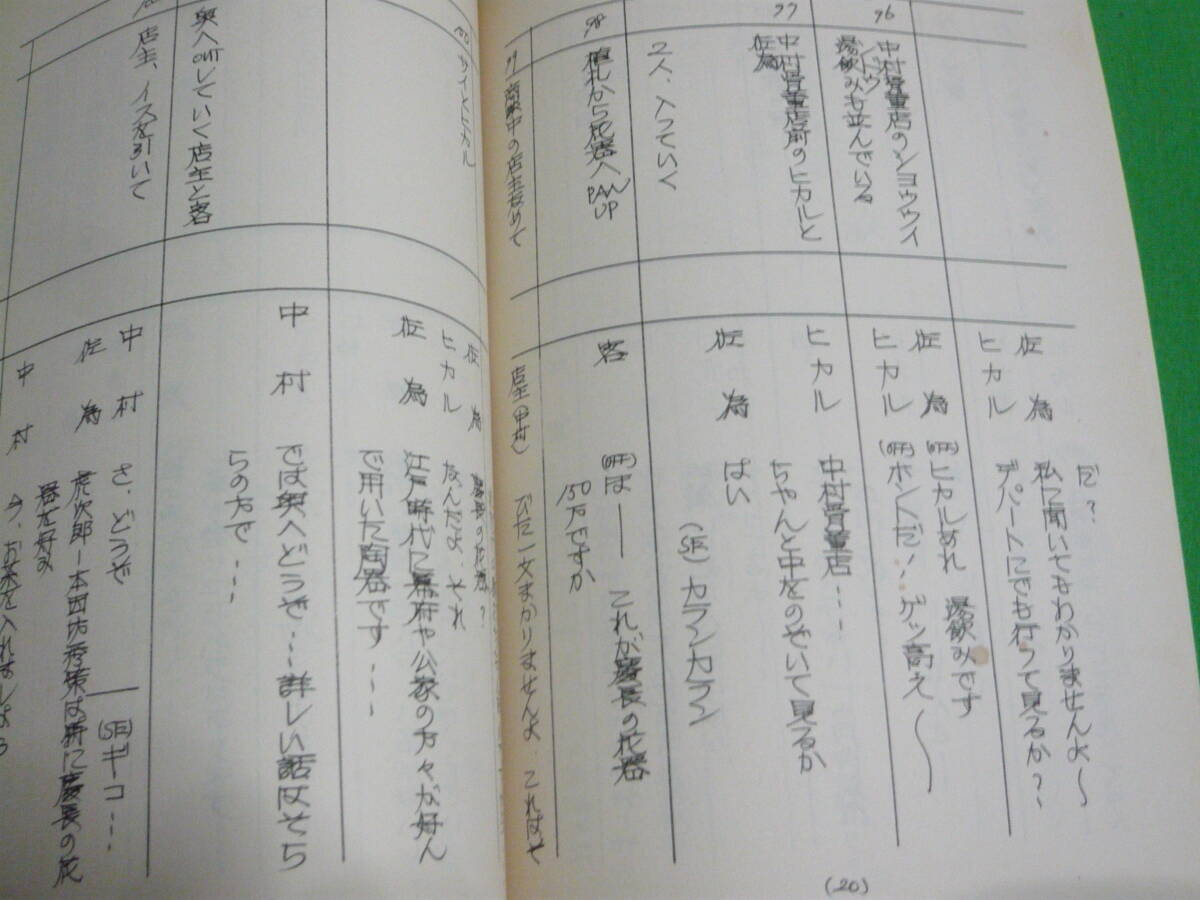 だ?
佐為 私に聞いてもわかりませんよ〜
ヒカル デパートにでも行って見るか?〜
96
中村骨董店のショウウイ
ンドウ
湯飲みも並んでいる
佐為 (OFF)ヒカルあれ 湯飲みです
ヒカル (OFF)ホントだ!ゲッ高え〜
97
中村骨董店前のヒカルと
佐為
2人、入っていく
ヒカル 中村骨董店…
ちゃんと中をのぞいて見るか
佐為 はい
(SE)カランカラン
98
値札から花器へ
PAN
UP
客 (OFF)ほ── これが慶長の花器
150万ですか
99 商談中の店主なめて
店主(中村) びた一文まかりませんよ、これはそ
(20)
佐為 慶長の花器?
ヒカル なんだよ、それ
サイとヒカル
佐為 江戸時代に幕府や公家の方々が好ん
で用いた陶器です…
奥へOUTしていく店主と客
中村 では奥へどうぞ…詳しい話はそち
らの方で…
店主、イスを引いて
中村 さ、どうぞ
(SE)ギーコ…
佐為 虎次郎─本因坊秀策は特に慶長の花
器を好み
中村 今、お茶を入れましょう